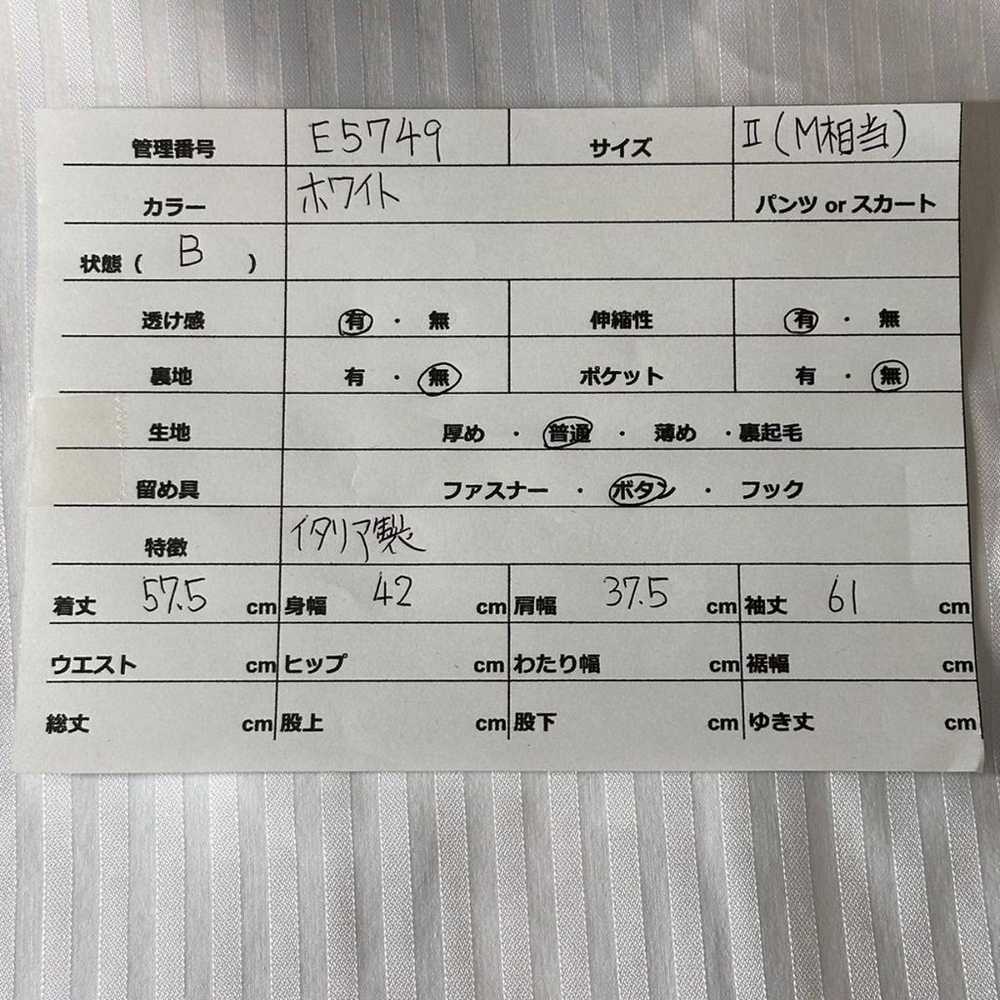 管理番号 E5749 サイズ Ⅱ(M相当)
カラー ホワイト パンツ or スカート
状態 ( B )
透け感 有 ・ 無 伸縮性 有 ・ 無
裏地 有 ・ 無 ポケット 有 ・ 無
生地 厚め ・ 普通 ・ 薄め ・裏起毛
留め具 ファスナー ・ ボタン ・ フック
特徴 イタリア製
着丈 57.5 cm 身幅 42 cm 肩幅 37.5 cm 袖丈 61 cm
ウエスト cm ヒップ cm わたり幅 cm 裾幅 cm
総丈 cm 股上 cm 股下 cm ゆき丈 cm